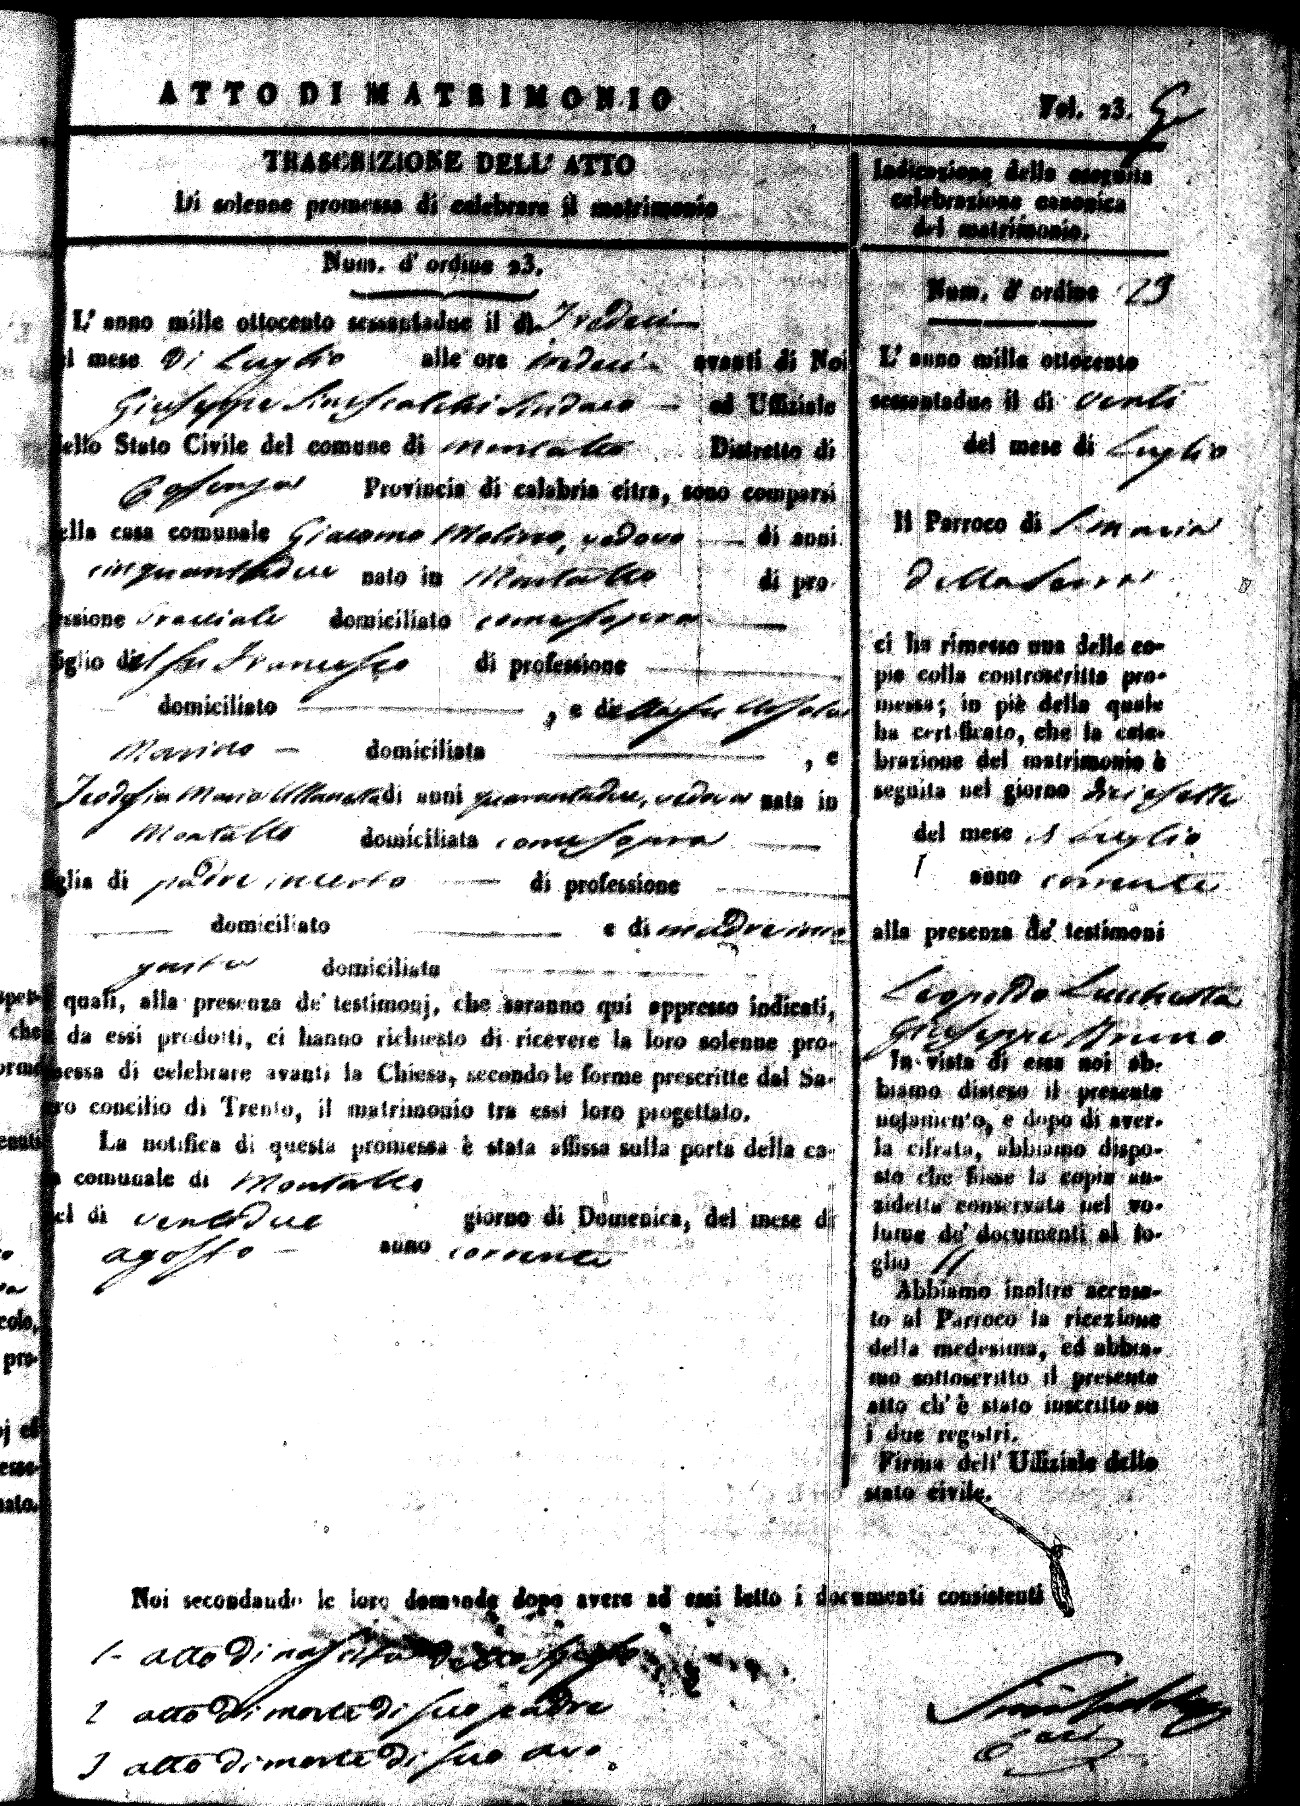 ATTO DI MATRIMONIO
Vol. 23.
TRASCRIZIONE DELL' ATTO
Di solenne promessa di celebrare il matrimonio
Num. d' ordine 23.
L' anno mille ottocento sessantadue il dì Tredeci
mese di Luglio alle ore tredeci avanti di Noi
Giuseppe Siniscalchi Sindaco ed Uffiziale
dello Stato Civile del comune di Montalto Distretto di
Cosenza Provincia di calabria citra, sono comparsi
nella casa comunale Giacomo Molinro, vedovo di anni
cinquantadue nato in Montalto di pro-
fessione bracciale domiciliato come sopra
figlio del fu Francesco di professione
domiciliato , e della fu
Marino domiciliata , e
Teodosia Maria di anni quarantadue, vedova nata in
Montalto domiciliata come sopra
figlia di padre incerto di professione
domiciliato e di madre
domiciliata
quali, alla presenza de' testimonj, che saranno qui appresso indicati,
da essi prodotti, ci hanno richiesto di ricevere la loro solenne pro-
messa di celebrare avanti la Chiesa, secondo le forme prescritte dal Sa-
cro concilio di Trento, il matrimonio tra essi loro progettato.
La notifica di questa promessa è stata affissa sulla porta della ca-
comunale di Montalto
dì ventidue giorno di Domenica, del mese di
agosto anno corrente
Indicazione della eseguita
celebrazione canonica
del matrimonio.
Num. d' ordine 23
L' anno mille ottocento
sessantadue il dì venti
del mese di Luglio
Il Parroco di S. Maria
della Serra
ci ha rimesso una delle co-
pie colla controscritta pro-
messa; in piè della quale
ha certificato, che la cele-
brazione del matrimonio è
seguita nel giorno
del mese Luglio
anno corrente
alla presenza de' testimoni
Leopoldo Lucchetta
Giuseppe Bruno
In vista di essa noi ab-
biamo disteso il presente
notamento, e dopo di aver-
la cifrata, abbiamo dispo-
sto che fosse la copia an-
zidetta conservata nel vo-
lume de' documenti al fo-
glio 11
Abbiamo inoltre accusa-
to al Parroco la ricezione
della medesima, ed abbia-
mo sottoscritto il presente
atto ch' è stato inscritto su
i due registri.
Firma dell' Uffiziale dello
stato civile.
Noi secondando le loro domande dopo avere ad essi letto i documenti consistenti
1- atto di nascita dello sposo
2 atto di morte di suo padre
3 atto di morte di suo avo